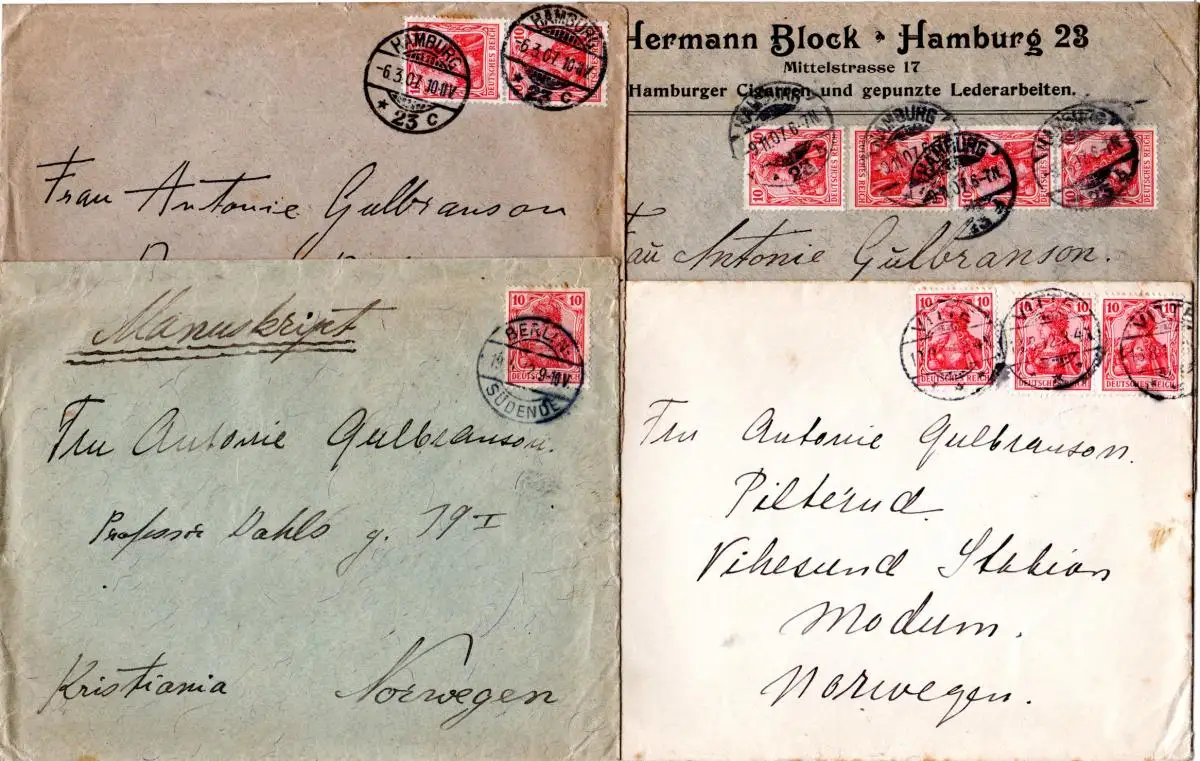 HAMBURG
-6.3.07. 10-11V.
* 23 c
HAMBURG
-6.3.07. 10-11V.
* 23 c
DEUTSCHES REICH
10
DEUTSCHES REICH
Frau Antonie Gulbranson
Hermann Block • Hamburg 23
Mittelstrasse 17
Hamburger Cigarren und gepunzte Lederarbeiten.
HAMBURG
9.11.07. 6-7N.
* 23
HAMBURG
HAMBURG
10
DEUTSCHES REICH
DEUTSCHES REICH
DEUTSCHES REICH
DEUTSCHES REICH
Antonie Gulbranson.
Manuskript
10 10
DEUTSCHES REICH
BERLIN
9-10V.
SÜDENDE
Fru Antonie Gulbranson.
Professor Dahls g. 19 I
Kristiania Norwegen
10 10
DEUTSCHES REICH
10 10
DEUTSCHES REICH
10 10
DEUTSCHES REICH
Fru Antonie Gulbranson.
Pilterud
Vikesund Station
Modum.
Norwegen.